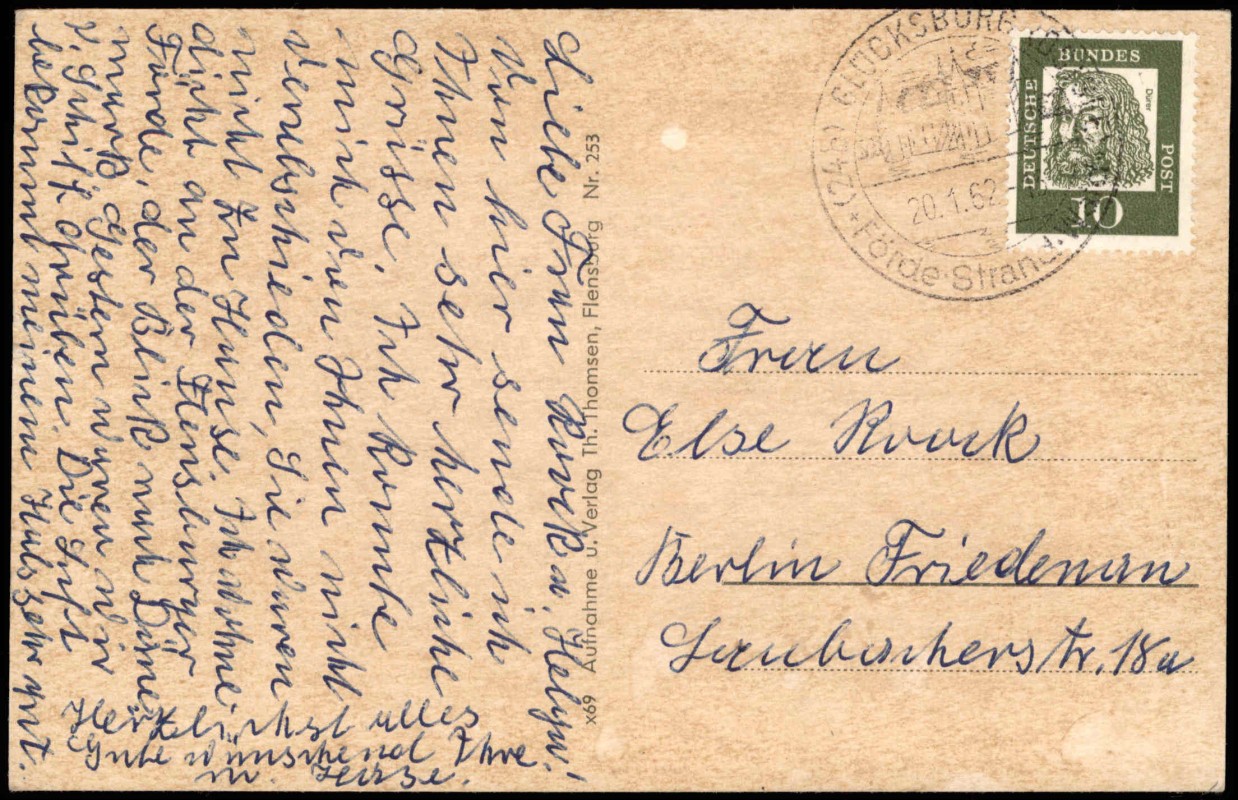 Liebe Frau Roock u. Helga!
Von hier sende ich
Ihnen sehr herzliche
Grüsse. Ich konnte
mich von Ihnen nicht
verabschieden, Sie waren
nicht zu Hause. Ich wohne
dicht an der Flensburger
Förde, der Blick nach Däne
mark. Gestern waren wir
p. Schiff drüben. Die Luft
bekommt meinem Hals sehr gut.
Herzlichst alles
Gute wünschend Ihre
M. Hesse.
x69 Aufnahme u. Verlag Th. Thomsen, Flensburg Nr. 253
(24b) GLÜCKSBURG
20.1.62
Förde-Strand
DEUTSCHE BUNDES POST
Dürer
10
Frau
Else Roock
Berlin Friedenau
Laubacherstr. 18a